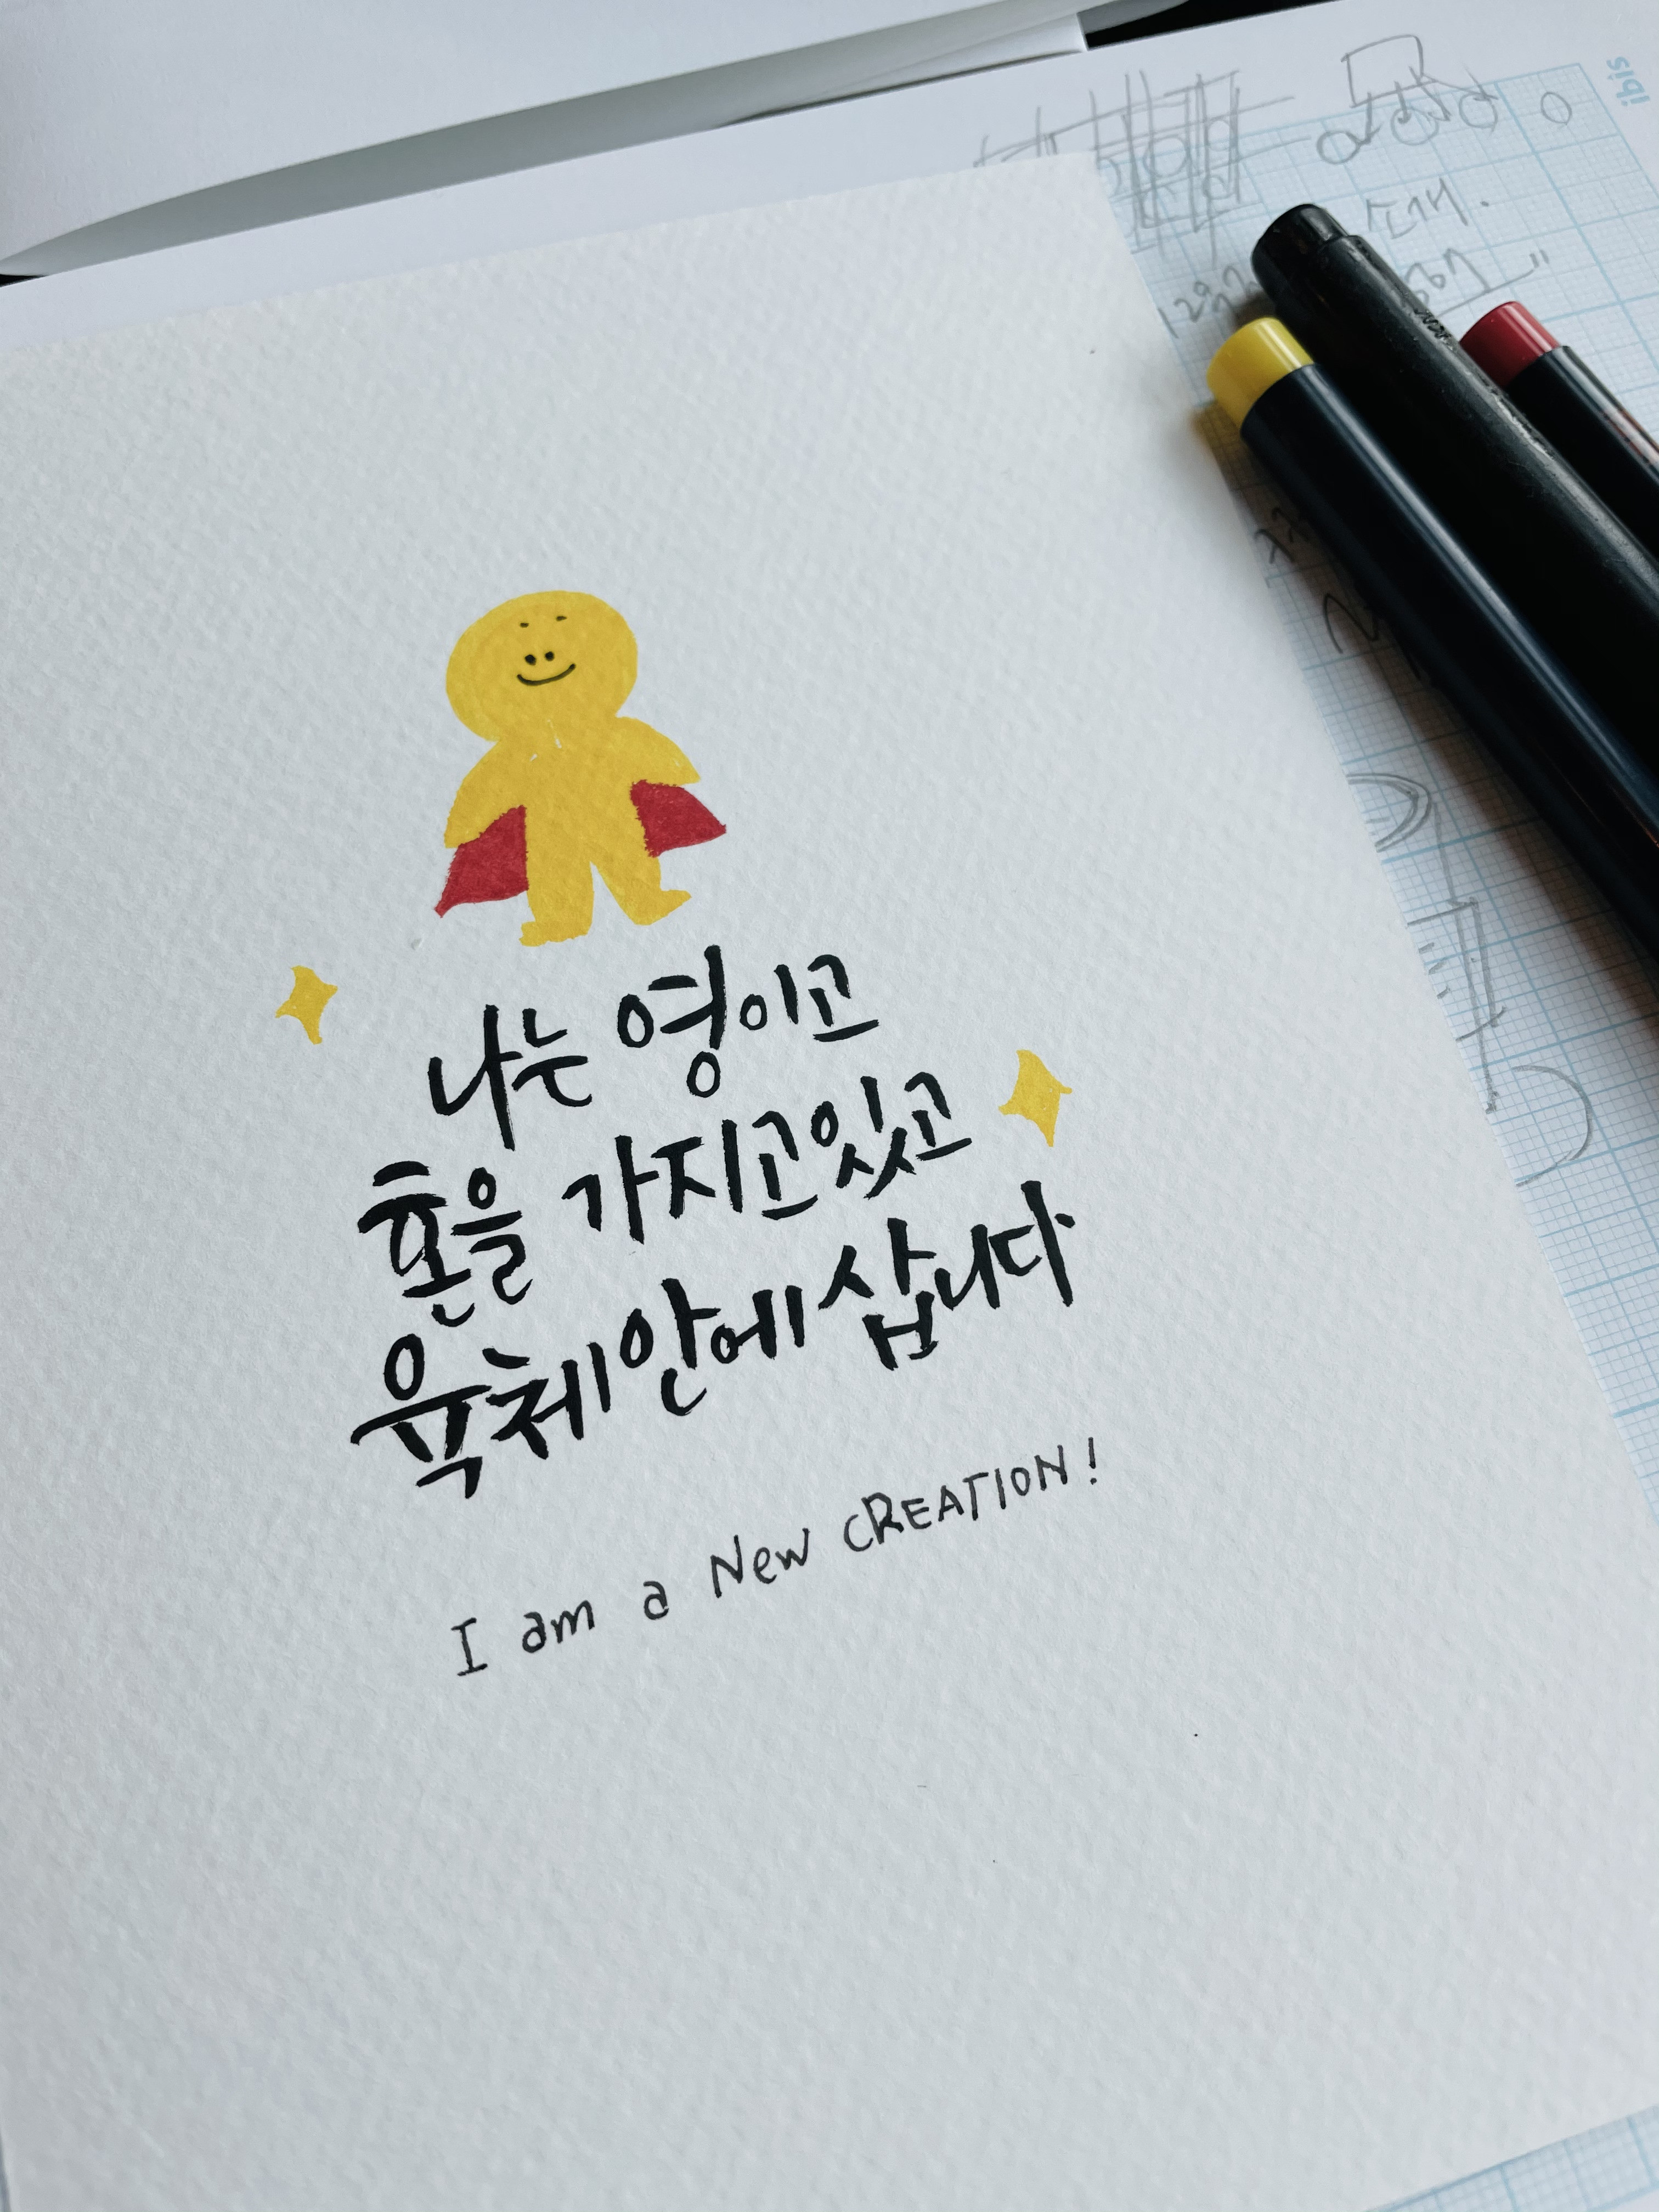 나는 영이고
혼을 가지고있고
육체안에 삽니다
I am a New CREATION!
ibis